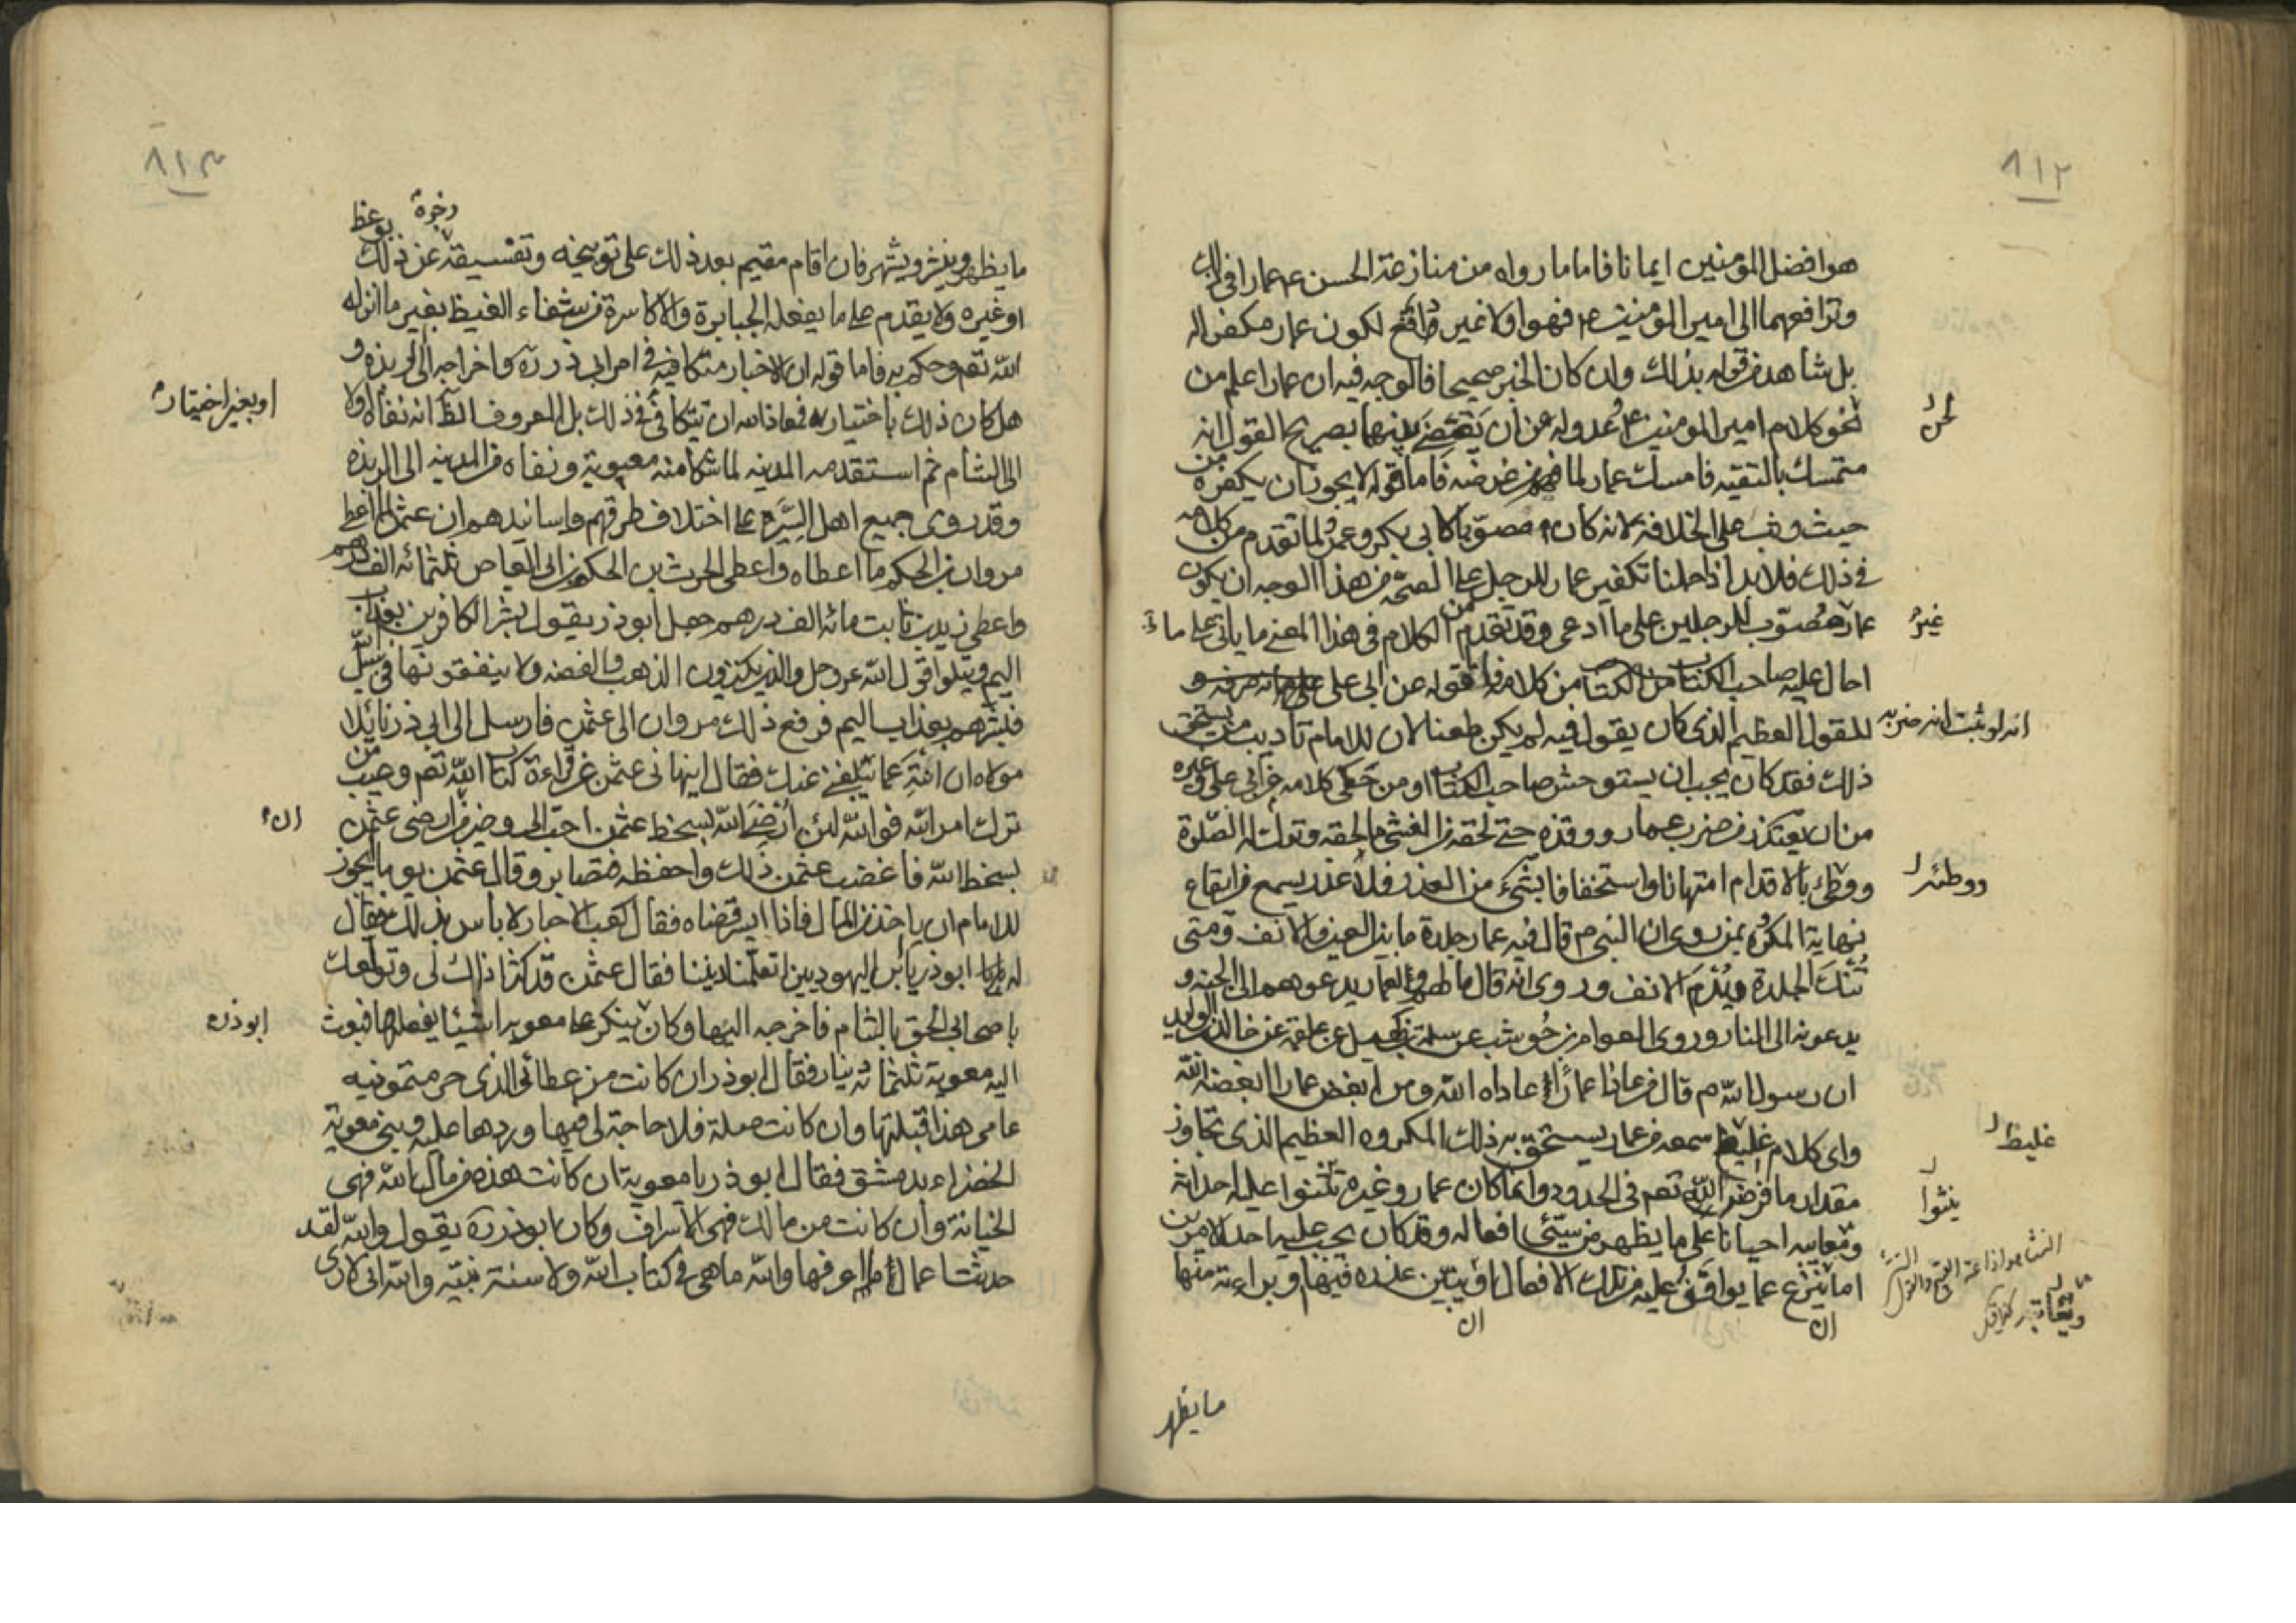 ٨١٢
هو افضل المؤمنين ايمانا فاما ما رواه من منازعة الحسن ع م عمارا في ذلك
وترافعهما الى امير المؤمنين ع م فهو اولا غير قاقع لكون عمار مكفرا له
بل شاهد من قوله بذلك وان كان الخبر صحيحا فالوجه فيه ان عمارا علم من
لحن
نحو كلام امير المؤمنين ع م وعدوله عن ان يقضى بينهما بصريح القول انه
متمسك بالتقيه فامسك عمار لما فهم من غرضه فاما قوله لا يجوز ان يكفره من
حيث وثب على الخلافة لانه كان مصوبا لابي بكر وعمر ولما تقدم من كلامه
في ذلك فلا بد اذا حملنا تكفير عمار للرجل على الصحة من هذا الوجه ان يكون
عمار مصوب للرجلين على ما ادعى وقد تقدم من الكلام في هذا المعنى ما ياتي على ما
غير
احال عليه صاحب الكتاب من كلامه فاما قوله عن ابي على
انه لو ثبت انه ضربه
للقول العظيم الذي كان يقول فيه لم يكن طعنا لان للامام تاديب من يستحق
ذلك فقد كان يجب ان يستوحش صاحب الكتاب او من حكى كلامه من ابي على وغيره
من ان يعتذر من ضرب عمار ووقذه حتى لحقه من الغشى ما لحقه وترك له الصلوة
ووطئه
ووطئ بالاقدام امتهانا واستخفافا بشئ من العذر فلا عذر يسمع من ايقاع
نهاية المكروه بمن روى ان النبي م قال فيه عمار جلدة ما بين العين والانف ومتى
تنك الجلدة يدم الانف وروى انه قال ما لهم ولعمار يدعوهم الى الجنه و
يدعونه الى النار وروى العوام بن حوشب عن سلمة بن كهيل عن علقمة عن خالد بن الوليد
ان رسول الله م قال من عادى عمارا عاداه الله ومن ابغض عمارا ابغضه الله
غليظ
واى كلام غليظ سمعه من عمار يستحق به ذلك المكروه العظيم الذي تجاوز
ينثوا
مقدار ما فرضه الله تعم في الحدود وانما كان عمار وغيره ينثوا عليه احداثه
ومعايبه احيانا على ما يظهر من سيئ افعاله وقد كان يجب عليه احد الامرين
اما ينزع عما يوافق عليه من تلك الافعال او يبين عذره فيها وبراءته منها
ان
ان
ما يظهر
٨١٣
ما يظهر وينشر ويشتهر فان اقام مقيم بعد ذلك على توبيخه وتفسيقه زجره عن ذلك بوعظ
او غيره ولا يقدم على ما يفعله الجبابرة والاكاسرة من شفاء الغيظ بغير ما انزله
الله تعم وحكم به فاما قوله ان الاخبار متكافيه في امر ابي ذر ره واخراجه الى الربذه و
او بغير اختياره
هل كان ذلك باختياره فمعاذ الله ان يتكافى في ذلك بل المعروف الظ انه نفاه اولا
الى الشام ثم استقدمه المدينه لما شكا منه معوية ونفاه من المدينه الى الربذه
وقد روى جميع اهل السيره على اختلاف طرقهم واسانيدهم ان عثمن لما اعطى
مروان بن الحكم ما اعطاه واعطى الحرث بن الحكم بن ابي العاص ثلثمائه الف درهم
واعطى زيد بن ثابت مائه الف درهم جعل ابو ذر يقول بشر الكافرين بعذاب
اليم ويتلو قول الله عز وجل والذين يكنزون الذهب والفضه ولا ينفقونها في سبيل الله
فبشرهم بعذاب اليم فرفع ذلك مروان الى عثمن فارسل الى ابي ذر نائلا
مولاه ان انته عما يبلغني عنك فقال اينهاني عثمن عن قراءة كتاب الله تعم وعيب من
ان
ترك امر الله فوالله لئن ارضى الله بسخط عثمن احب الي وخير من ان ارضى عثمن
بسخط الله فاغضب عثمن ذلك واحفظه فتصابر وقال عثمن يوما ايجوز
للامام ان ياخذ من المال فاذا ايسر قضاه فقال كعب الاحبار لا باس بذلك فقال
له ابو ذر يا بن اليهوديين اتعلمنا ديننا فقال عثمن قد كثر اذاك لي وتولعك
ابو ذره
باصحابي الحق بالشام فاخرجه اليها وكان ينكر على معويه اشيئا يفعلها فبعث
اليه معوية ثلثمائه دينار فقال ابو ذر ان كانت من عطائي الذي حرمتمونيه
عامى هذا قبلتها وان كانت صلة فلا حاجة لى فيها وردها عليه وبنى معوية
الخضراء بدمشق فقال ابو ذر يا معوية ان كانت هذه من مال الله فهى
الخيانة وان كانت من مالك فهى الاسراف وكان ابو ذر ره يقول والله لقد
حدثت اعمال ما اعرفها والله ما هى في كتاب الله ولا سنة نبيه والله اني لارى